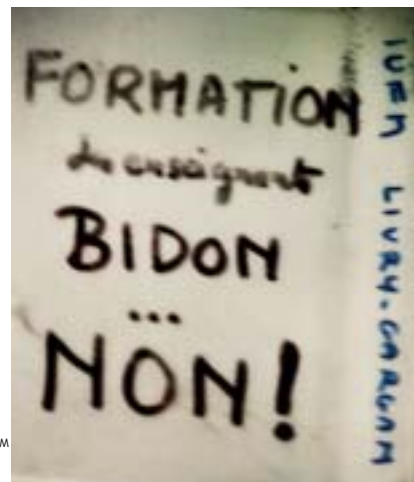 FORMATION
des enseignants
BIDON
...
NON!
IUFM LIVRY-GARGAN
M